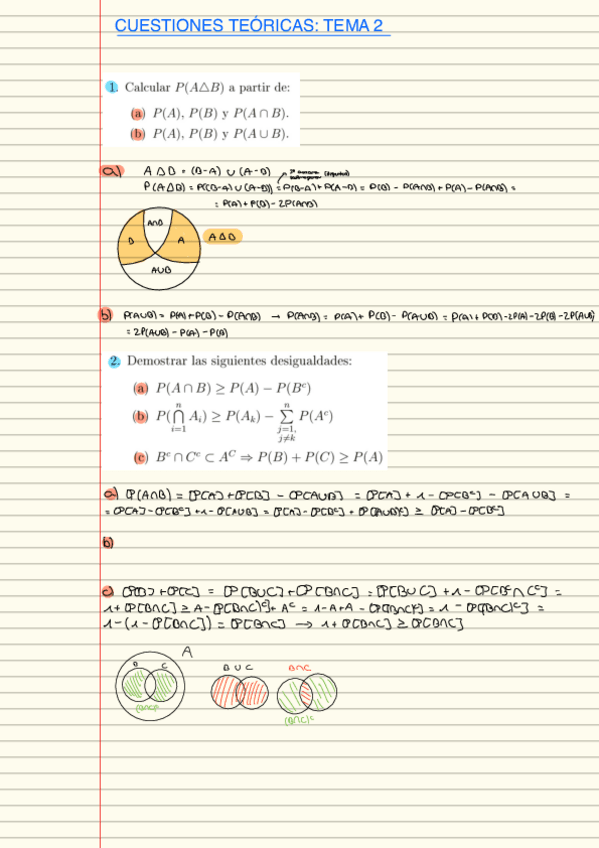 CUESTIONES TEÓRICAS: TEMA 2
1. Calcular P(A△B) a partir de:
(a) P(A), P(B) y P(A ∩ B).
(b) P(A), P(B) y P(A ∪ B).
a) A △ B = (B-A) ∪ (A-B)
P(A△B) = P((B-A) ∪ (A-B)) = P(B-A) + P(A-B) = P(B) - P(A∩B) + P(A) - P(A∩B) =
= P(A) + P(B) - 2P(A∩B)
A∩B
B A A△B
A∪B
b) P(A∪B) = P(A) + P(B) - P(A∩B) → P(A∩B) = P(A) + P(B) - P(A∪B) = P(A) + P(B) - 2P(A) - 2P(B) - 2P(A∪B)
= 2P(A∪B) - P(A) - P(B)
2. Demostrar las siguientes desigualdades:
(a) P(A ∩ B) ≥ P(A) − P(Bᶜ)
(b) P(⋂ⁿᵢ₌₁ Aᵢ) ≥ P(Aₖ) − ∑ⁿⱼ₌₁,ⱼ≠ₖ P(Aᶜ)
(c) Bᶜ ∩ Cᶜ ⊂ Aᶜ ⇒ P(B) + P(C) ≥ P(A)
a) P(A∩B) = P[A] + P[B] - P[A∪B] = P[A] + 1 - P[Bᶜ] - P[A∪B] =
= P[A] - P[Bᶜ] + 1 - P[A∪B] = P[A] - P[Bᶜ] + P[(A∪B)ᶜ] ≥ P[A] - P[Bᶜ]
b)
c) P[B] + P[C] = P[B∪C] + P[B∩C] = P[B∪C] + 1 - P[Bᶜ∩Cᶜ] =
1 + P[B∩C] ≥ A - P[(B∩C)ᶜ] + Aᶜ = 1 - A + A - P[(B∩C)ᶜ] = 1 - P[(B∩C)ᶜ] =
1 - (1 - P[B∩C]) = P[B∩C] → 1 + P[B∩C] ≥ P[B∩C]
A
B C B∪C B∩C
(B∩C)ᶜ (B∩C)ᶜ